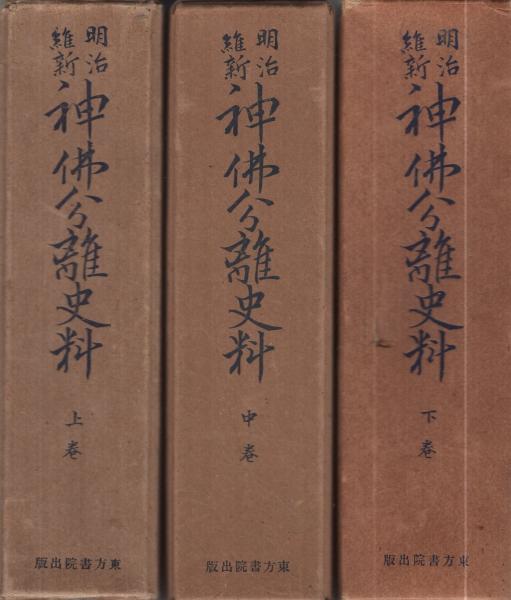 明治
維新
神佛分離史料
上卷
東方書院出版
明治
維新
神佛分離史料
中卷
東方書院出版
明治
維新
神佛分離史料
下卷
東方書院出版